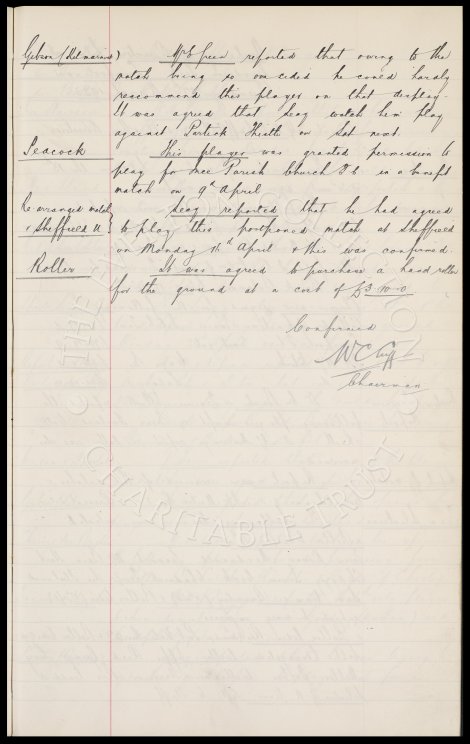 Gibson (Kilmarnock) Mr Green reported that owing to the
match being so one sided he could hardly
recommend this player on that display.
It was agreed that Secy watch him play
against Partick Thistle on Sat next
Peacock This player was granted permission to
play for Free Parish Church F.C. in a benefit
match on 9th April
Re arranged match Secy reported that he had agreed
v Sheffield U to play this postponed match at Sheffield
on Monday April & this was confirmed.
Roller It was agreed to purchase a hand roller
for the ground at a cost of £3-10-0
Confirmed
W C Cuff
Chairman
THE
CHARITABLE TRUST